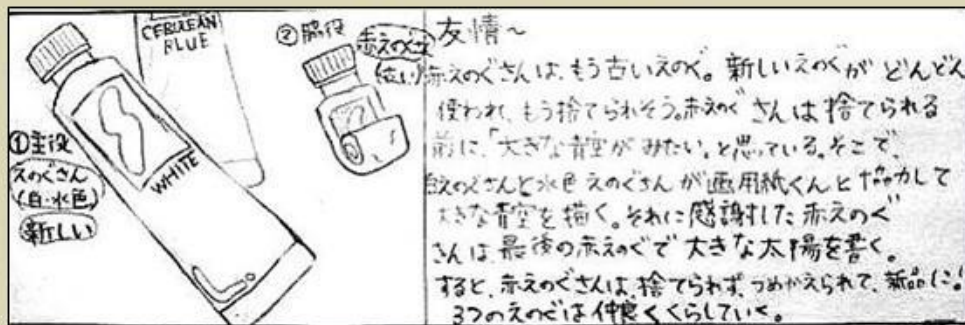 CERULEAN
BLUE
WHITE
①主役
えのぐさん
(白・水色)
新しい
②脇役
赤えのぐさん
友情～
赤えのぐさんは、もう古いえのぐ。新しいえのぐがどんどん
使われ、もう捨てられそう。赤えのぐさんは捨てられる
前に、「大きな青空がみたい。と思っている。そこで、
白えのぐさんと水色えのぐさんが画用紙くんと協力して
大きな青空を描く。それに感謝した赤えのぐ
さんは最後の赤えのぐで大きな太陽を書く。
すると、赤えのぐさんは、捨てられず、つめかえられて、新品に!
3つのえのぐは仲良くくらしていく。